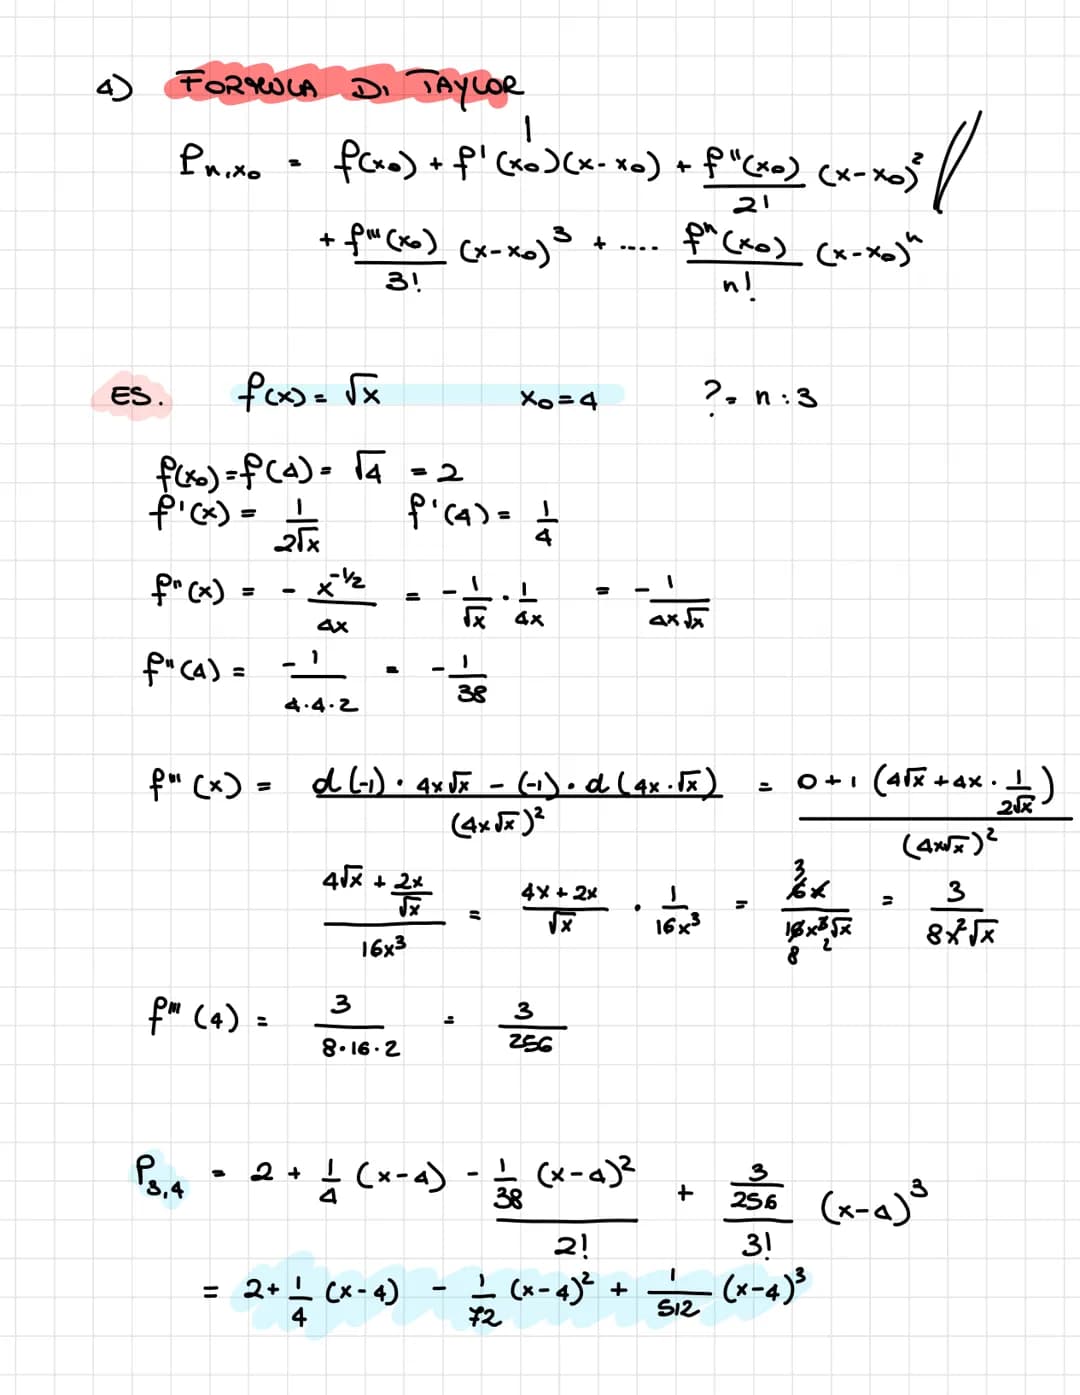 4) FORMULA DI TAYLOR
Pn,x₀ = f(x₀) + f'(x₀)(x-x₀) + f''(x₀)/2! (x-x₀)²
+ f'''(x₀)/3! (x-x₀)³ + .... fⁿ(x₀)/n! (x-x₀)ⁿ
ES. f(x) = √x x₀=4 ?= n:3
f(x₀) = f(4) = √4 = 2
f'(x) = 1/(2√x) f'(4) = 1/4
f''(x) = - x^(-1/2)/4x = - 1/√x · 1/4x = - 1/(4x√x)
f''(4) = -1/(4·4·2) = - 1/38
f'''(x) = (d(-1)·4x√x - (-1)·d(4x·√x))/(4x√x)² = (0+1(4√x + 4x · 1/(2√x)))/(4x√x)²
(4√x + 2x/√x)/16x³ = (4x+2x)/√x · 1/16x³ = 6x/(16x³√x) 3 8 2 = 3/(8x²√x)
f'''(4) = 3/(8·16·2) = 3/256
P3,4 = 2 + 1/4 (x-4) - (1/38 (x-4)²)/2! + (3/256)/3! (x-4)³
= 2+ 1/4 (x-4) - 1/72 (x-4)² + 1/512 (x-4)³